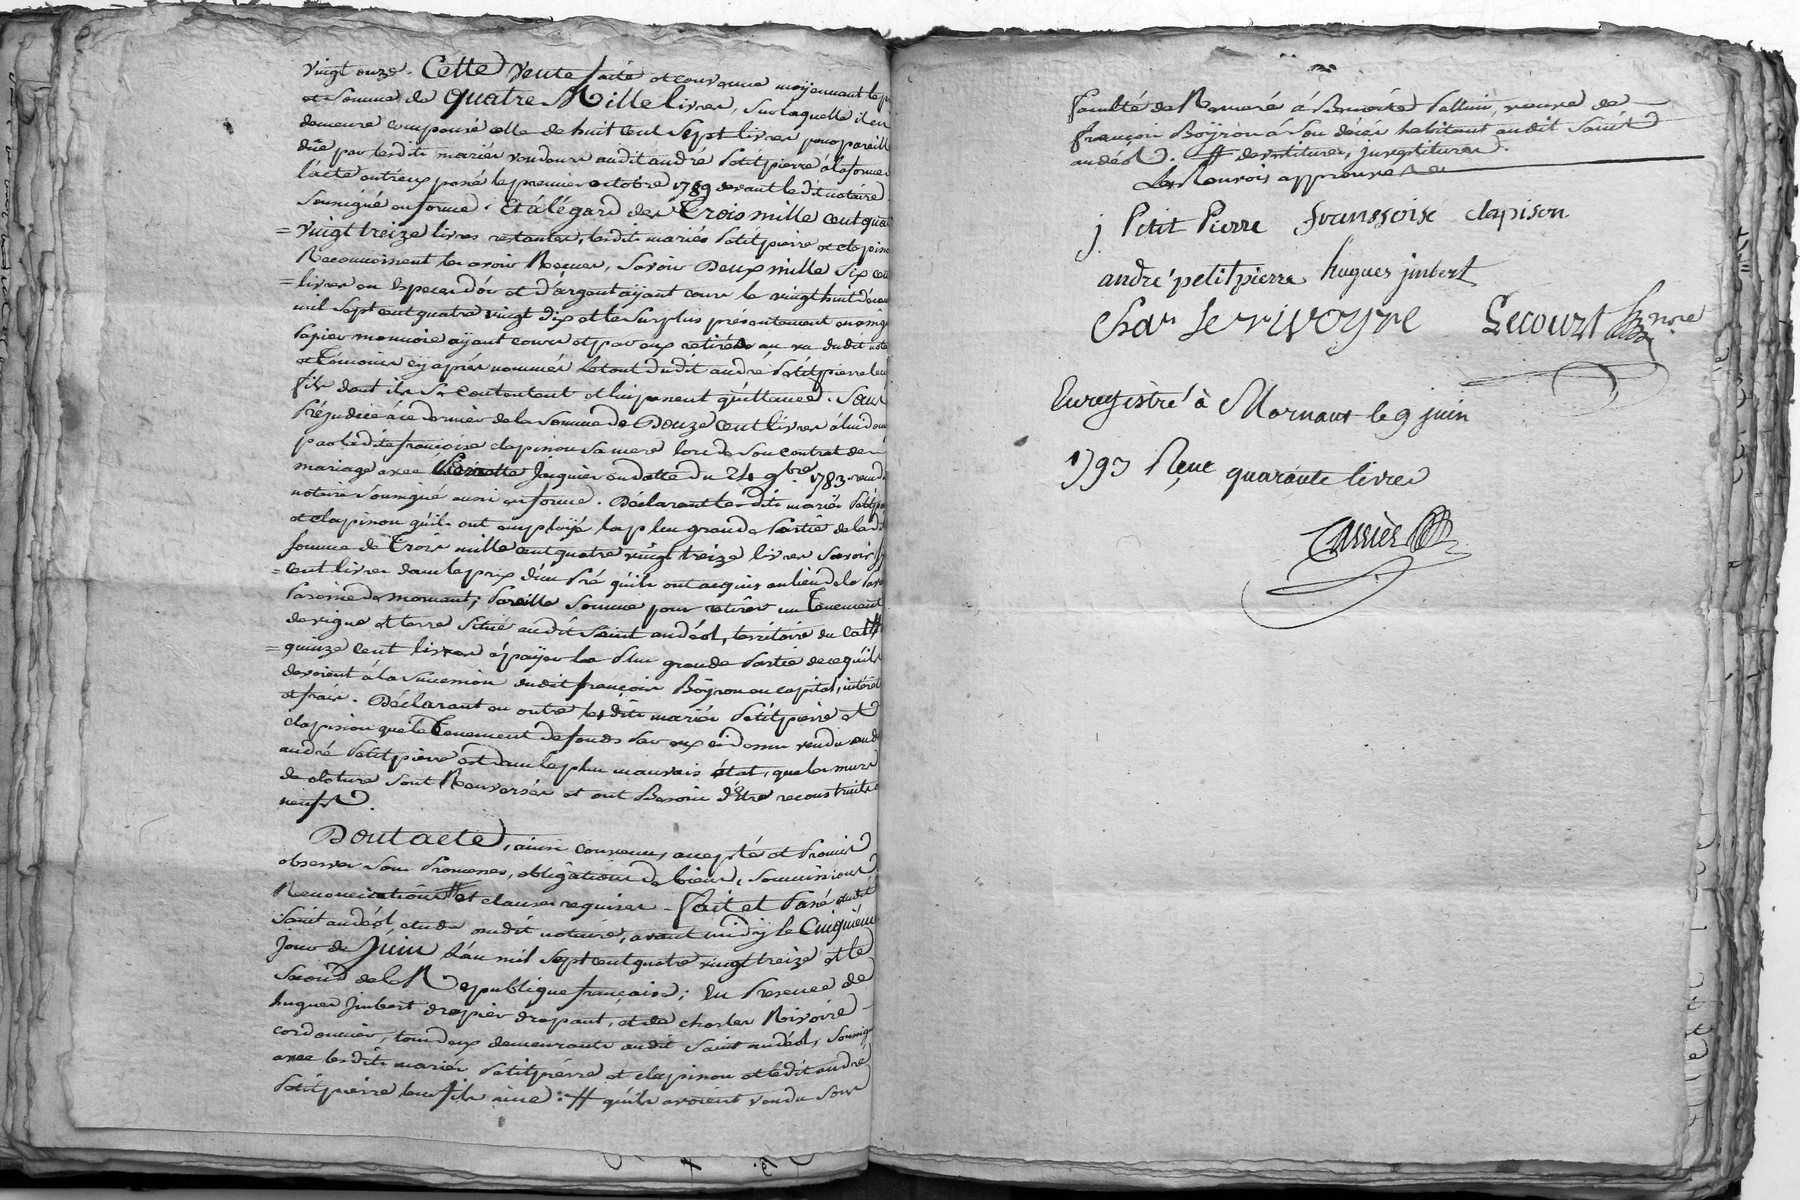 vingt onze. Cette vente faite et convenue moÿennant le prix
et somme de quatre Mille livres, sur laquelle il en
demeure compensé celle de huit cent sept livres pour pareille
düe par lesdits mariés vendeurs audit andré Petitpierre à la forme de
l'acte entr'eux passé le premier octobre 1789 devant ledit notaire
soussigné en forme. Et à légard des Trois mille cent quatre
= vingt treize livres restantes, lesdits mariés Petitpierre et clapison
Reconnoissent les avoir Recues, savoir Deux mille six cent
= livres en especes d'or et d'argent aÿant cours le vingt huit
mil sept cent quatre vingt dix et le surplus présentement en assignats
Papier monnoie aÿant cours et par eux retirés au vu dudit notaire
et Témoins cÿ après nommés le tout dudit andré Petitpierre leur
fils dont ils se contentent et lui passent quittance. Sans
Préjudice à ce dernier de la somme de Douze cent livres à lui
par ladite françoise clapison sa mere lors de son contrat de
mariage avec Jaquier en datte du 24 9bre 1783
notaire soussigné aussi en forme. Déclarant lesdits mariés Petitpierre
et clapison qu'ils ont emploÿé la plus grande Partie de ladite
somme de Trois mille cent quatre vingt treize livres savoir
= cent livres dans le prix d'un Pré qu'ils ont acquis au lieu de la
Paroisse de mornant; Pareille somme pour retirer un Tenement
de vigne et terre situé audit Saint andéol, territoire du
= quinze cent livres à païer la plus grande Partie de ce qu'ils
devoient à la succession dudit françois Boÿron en capital, intérêts
et frais. Déclarant en outre lesdits mariés Petitpierre et
clapison que le Tenement de fonds par eux ci dessus vendu audit
andré Petitpierre est dans le plus mauvais état, que les murs
de cloture sont Renversés et ont Besoin d'être reconstruits
neufs.
Dont acte, ainsi convenu, accepté et Promis
observer sous Promesses, obligations de biens, soumissions
Renonciations # et clauses requises. Fait et Passé audit
Saint andéol, étude dudit notaire, avant midy le Cinquieme
jour de Juin L'an mil sept cent quatre vingt treize et le
second de la Republique française; En Presence de
hugues Jmbert drapier drapant, et de charles Rivoire
cordonnier, tous deux demeurants audit Saint andéol, soussignés
avec lesdits mariés Petitpierre et clapison et ledit andré
Petitpierre leur fils ainé: # qu'ils avoient vendu sous
faculté de Remeré à Benoite Pellin, veuve de
françois Boÿron à son décès habitant audit Saint
andéol. # devetitures, jnvestitures.
Les Renvois approuvés
j Petit Pierre franssoise clapison
andré petitpierre hugues jmbert
Char Le rivoyre Lecourt nore
Enregistré à Mornant le 9 juin
1793 Reçu quarante livres